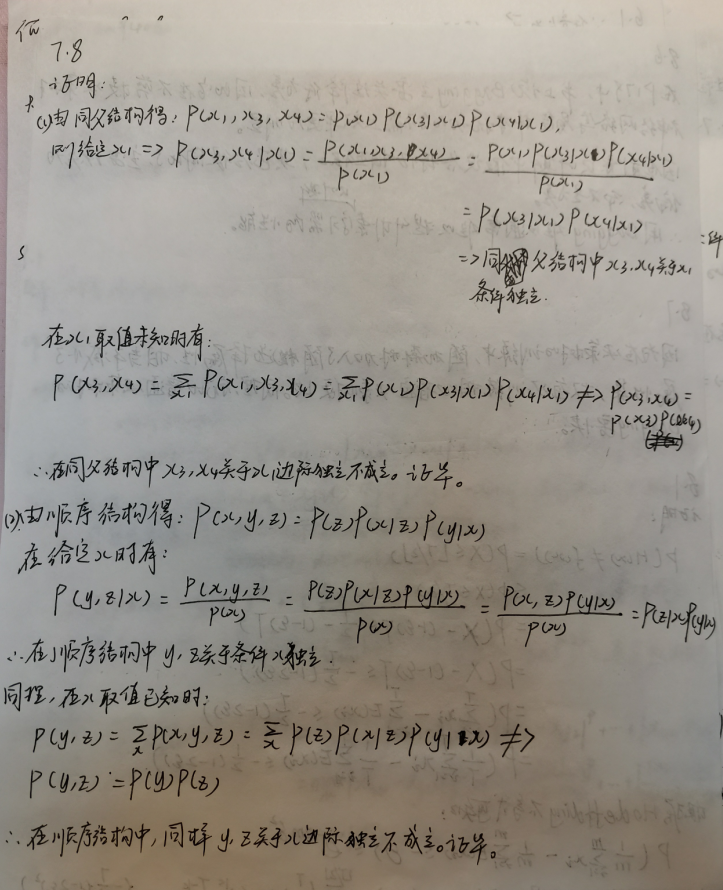 7.8
证明:
(1) 由同父结构得: P(x1, x3, x4) = P(x1) P(x3|x1) P(x4|x1).
则给定x1 => P(x3, x4|x1) = P(x1, x3, x4) / P(x1) = P(x1) P(x3|x1) P(x4|x1) / P(x1)
= P(x3|x1) P(x4|x1)
=> 同父结构中 x3, x4 关于 x1
条件独立.
在x1取值未知时有:
P(x3, x4) = Σx1 P(x1, x3, x4) = Σx1 P(x1) P(x3|x1) P(x4|x1) ≠> P(x3, x4) =
P(x3) P(x4)
∴在同父结构中 x3, x4 关于 x1 边际独立不成立。证毕。
(2).由顺序结构得: P(x, y, z) = P(z) P(x|z) P(y|x)
在给定x时有:
P(y, z|x) = P(x, y, z) / P(x) = P(z) P(x|z) P(y|x) / P(x) = P(x, z) P(y|x) / P(x) = P(z|x) P(y|x)
∴在顺序结构中 y, z 关于条件x独立.
同理, 在x取值已知时:
P(y, z) = Σx P(x, y, z) = Σx P(z) P(x|z) P(y|x) ≠>
P(y, z) = P(y) P(z)
∴在顺序结构中, 同样 y, z 关于 x 边际独立不成立。证毕。